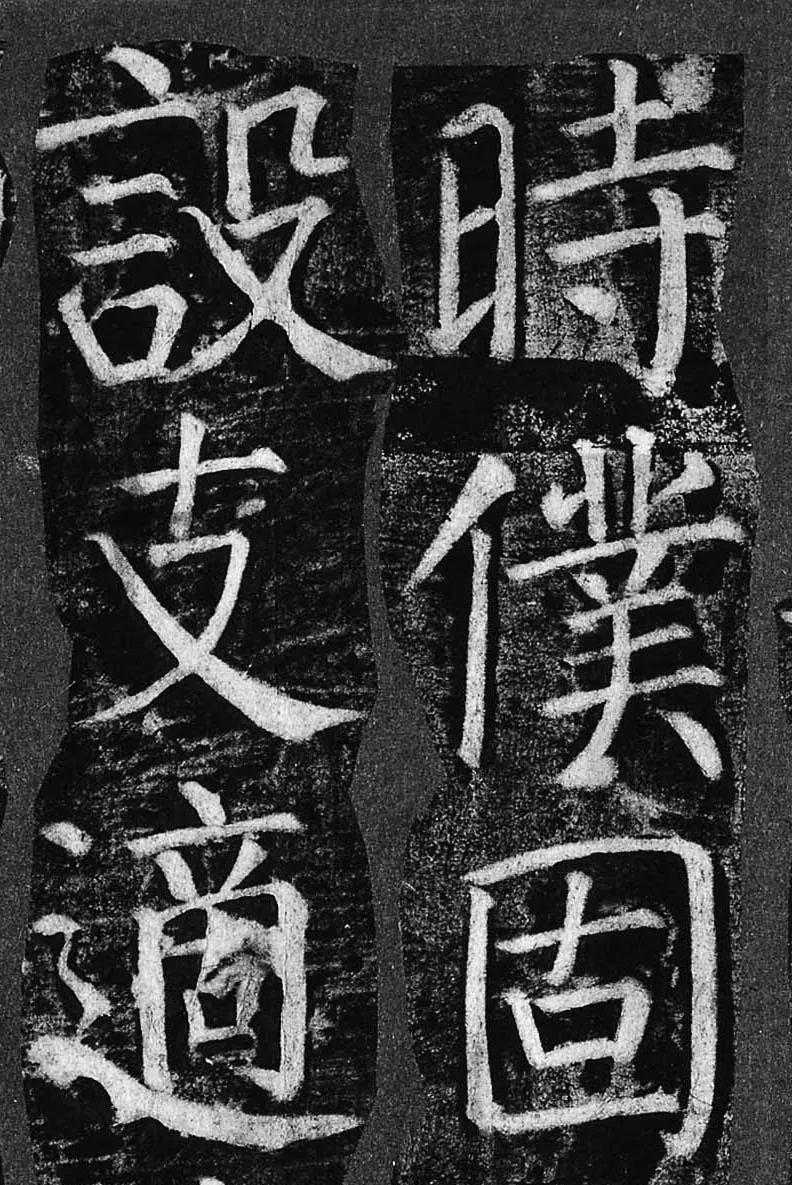 時僕固
設支適